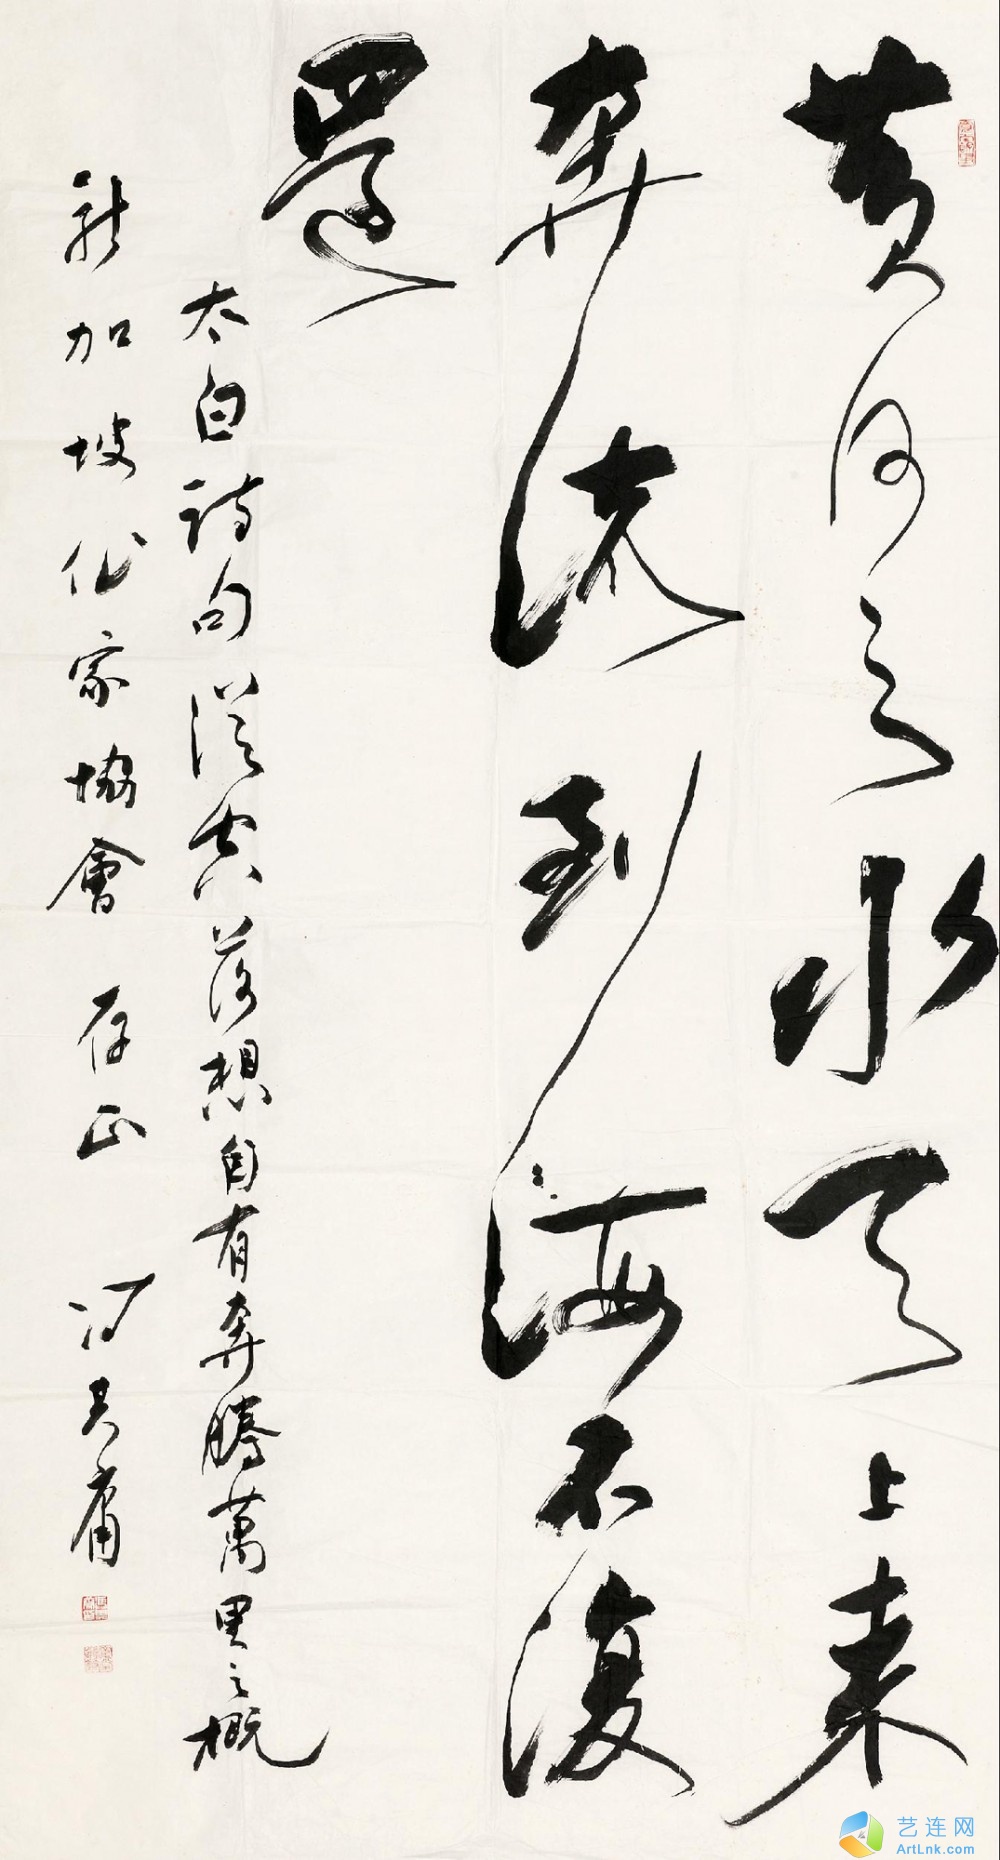 黄河之水天上来
奔流到海不復
還
太白詩句從空落想自有奔騰萬里之概
新加坡作家協會 存正 馮其庸
艺连网
ArtLnk.com